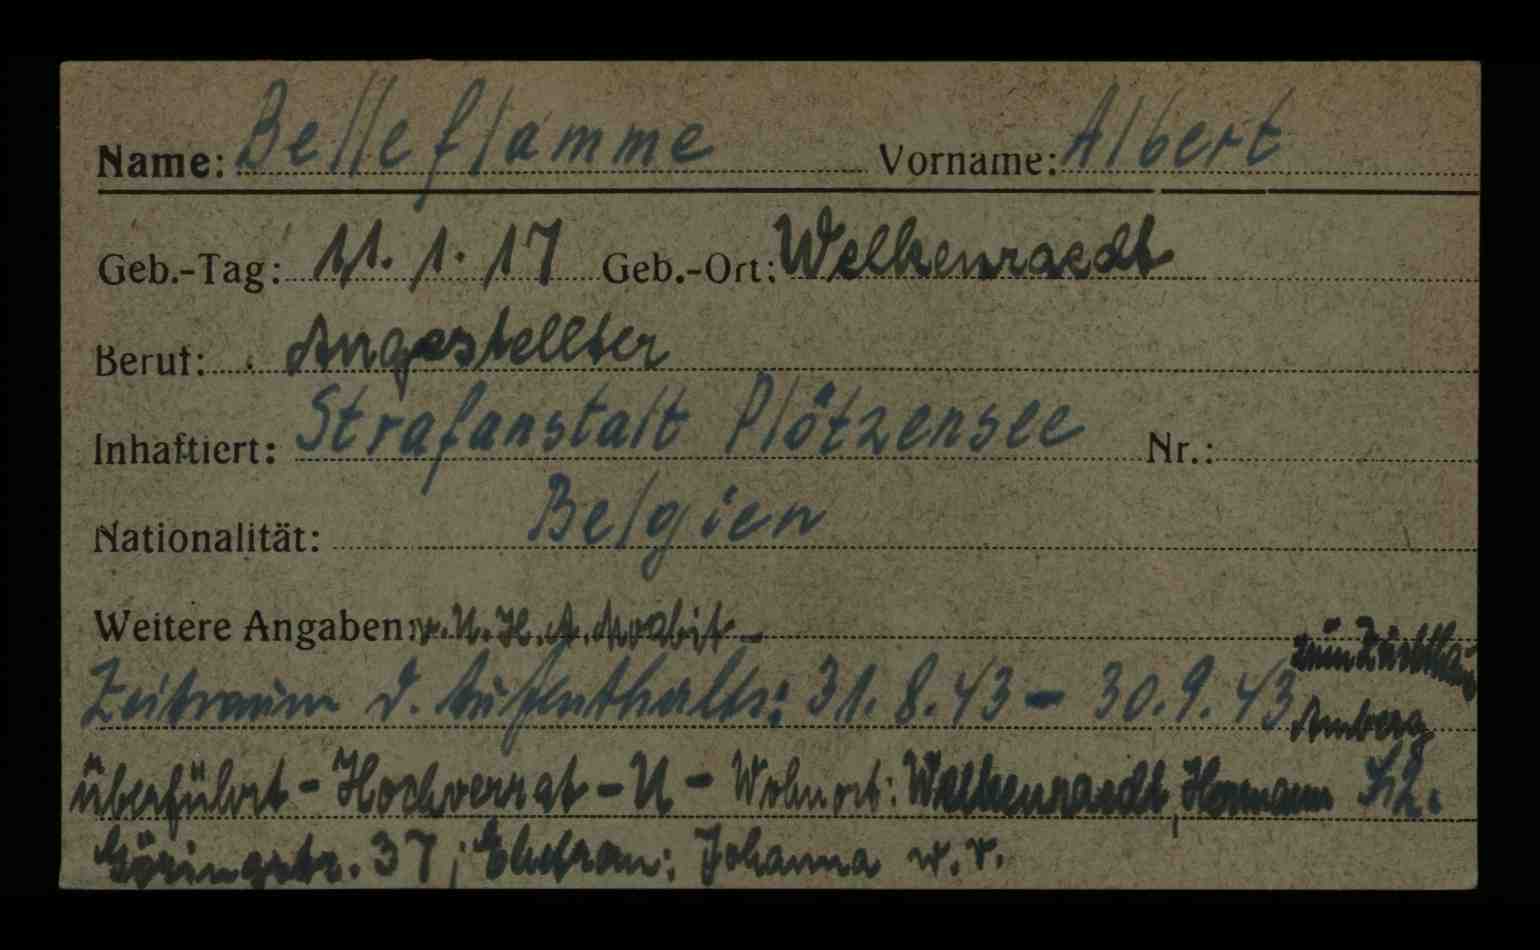 Name: Belleflamme Vorname: Albert
Geb.-Tag: 11.1.17 Geb.-Ort: Welkenraedt
Beruf: Angestellter
Inhaftiert: Strafanstalt Plötzensee Nr.:
Nationalität: Belgien
Weitere Angaben: v. U.H.A. Moabit -
Zeitraum d. Aufenthalts: 31.8.43 - 30.9.43 zum Zuchthaus
Amberg
überführt - Hochverrat - U - Wohnort: Welkenraedt Hermann
Göringstr. 37; Ehefrau: Johanna w.v.